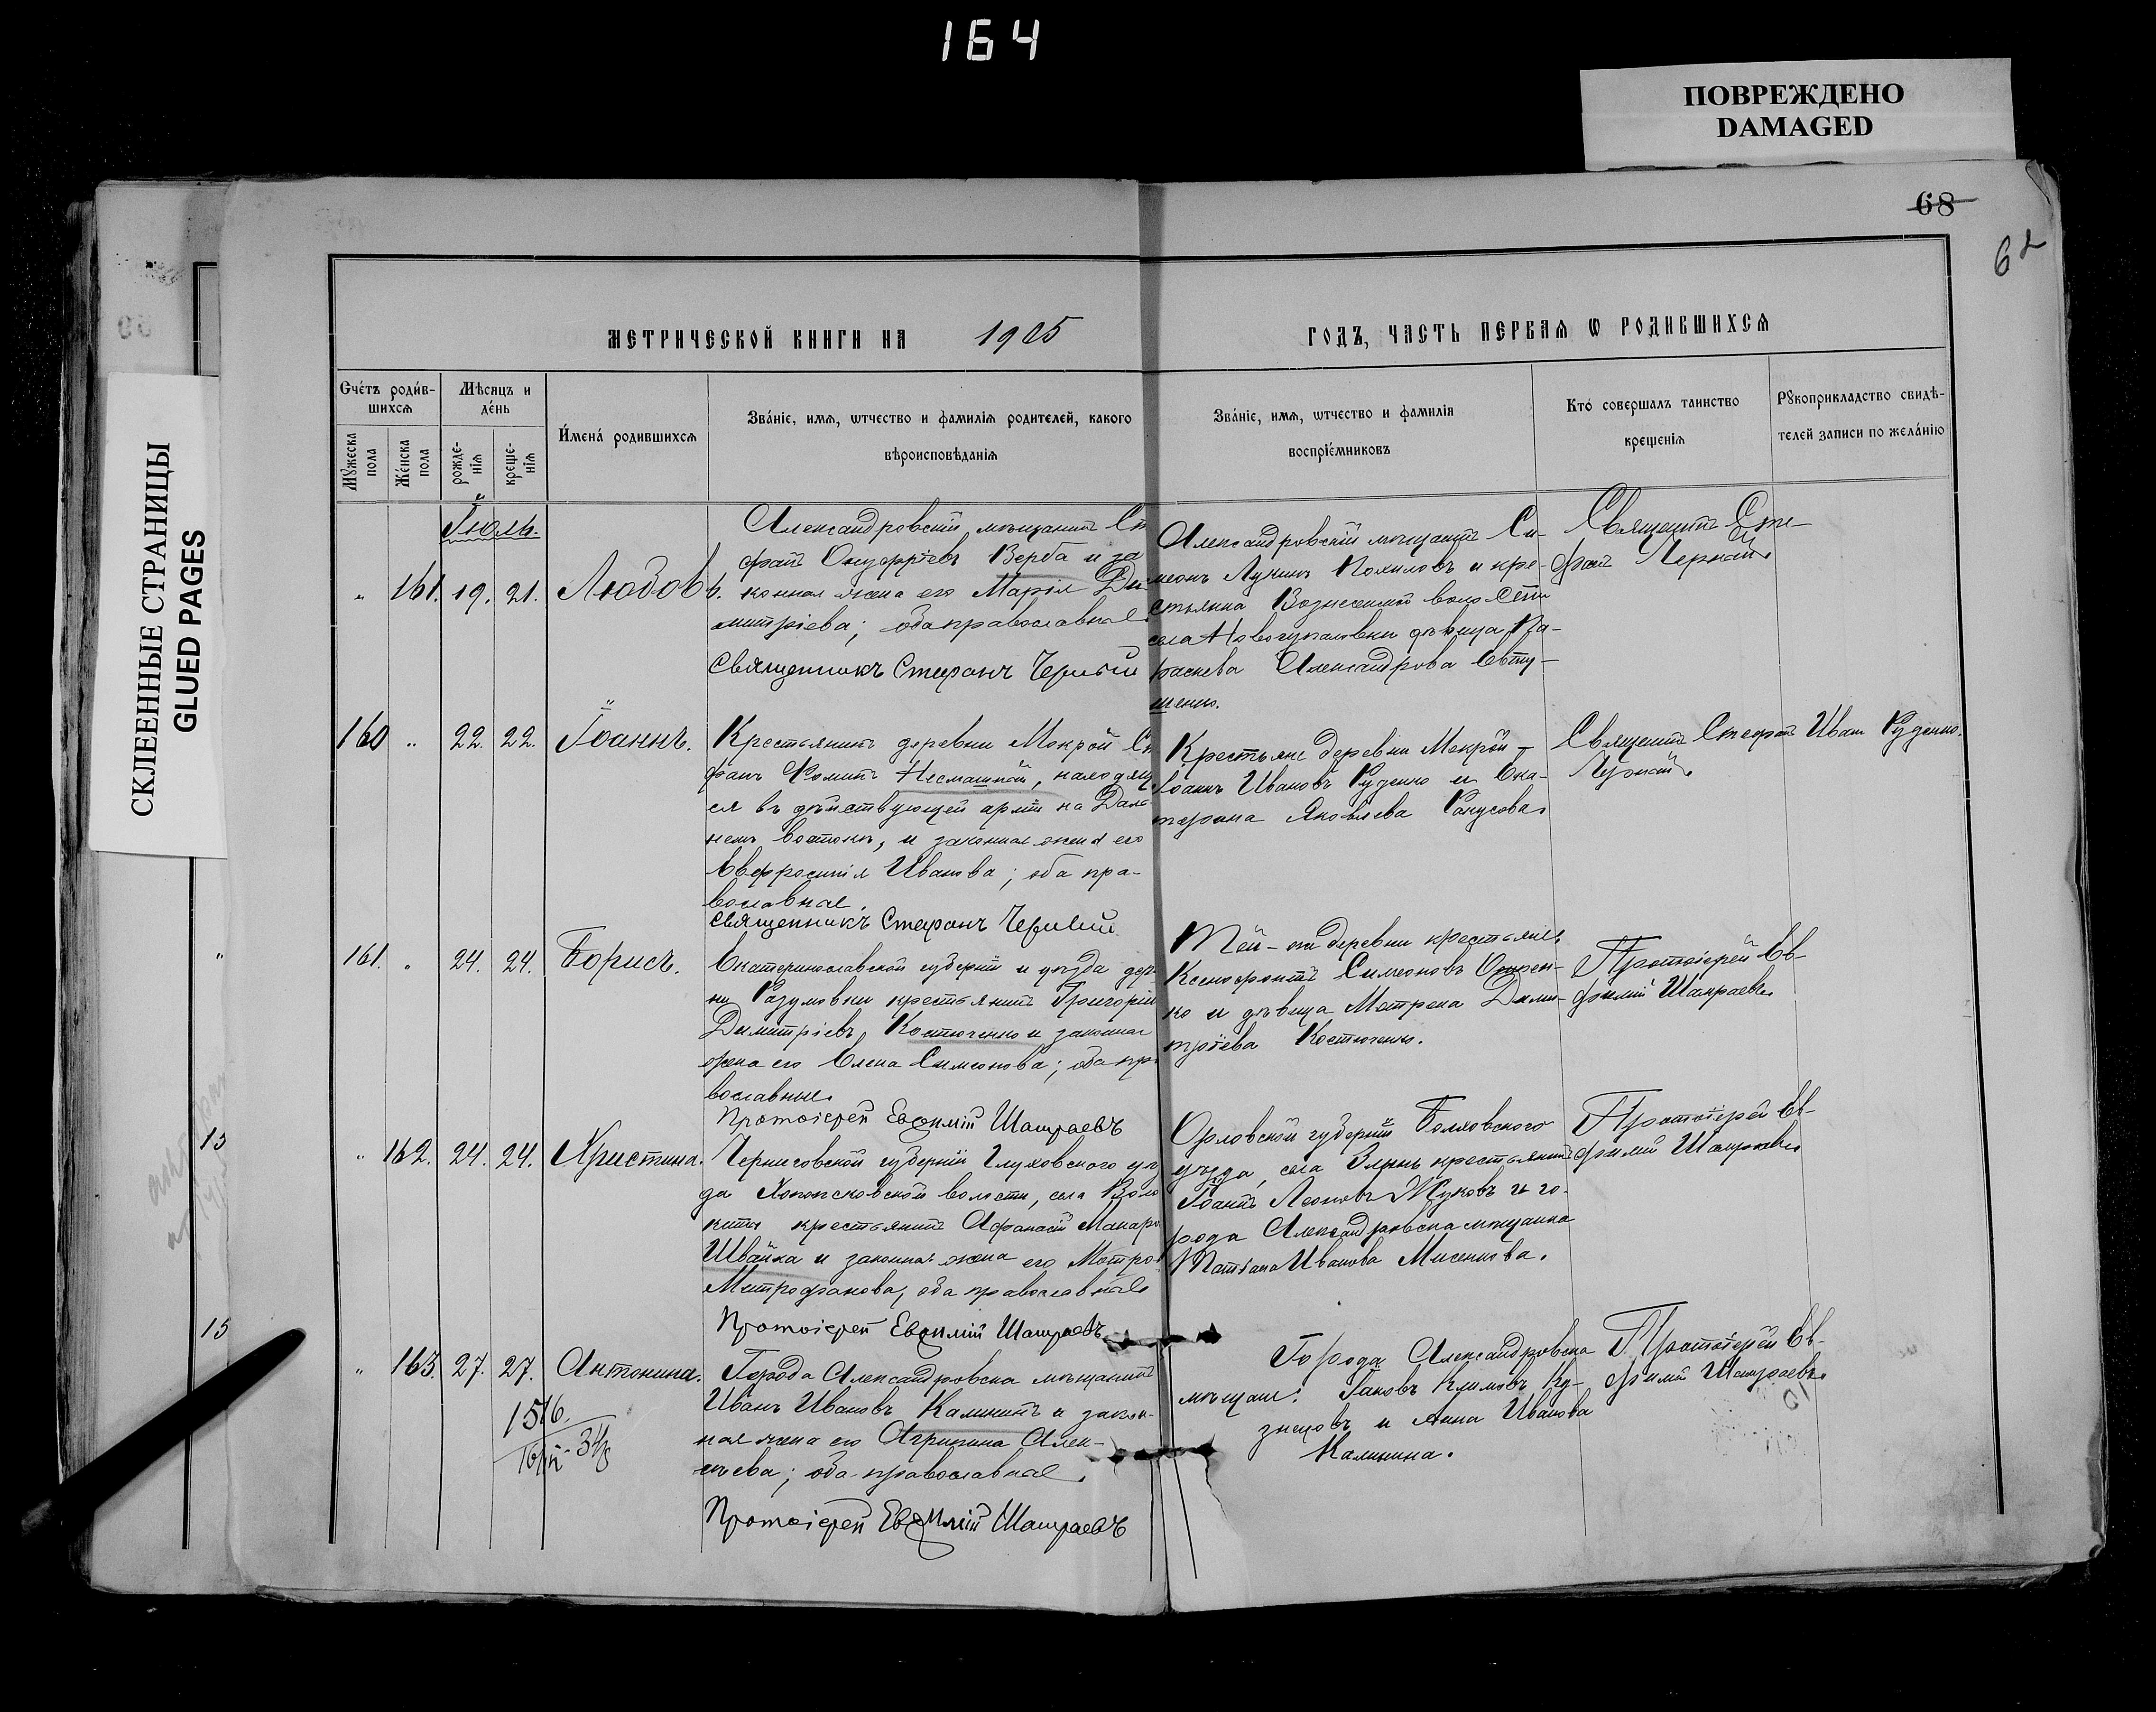 164
ПОВРЕЖДЕНО
DAMAGED
СКЛЕЕННЫЕ СТРАНИЦЫ
GLUED PAGES
68
62
МЕТРИЧЕСКОЙ КНИГИ НА 1905
ГОДЪ, ЧАСТЬ ПЕРВАЯ Ѡ РОДИВШИХСЯ
Счетъ родив-
шихся
Мужеска пола
Женска пола
Мѣсяцъ и
день
рожде-
нія
креще-
нія
Имена родившихся
Званіе, имя, ѡтчество и фамилія родителей, какого
вѣроисповѣданія
Званіе, имя, ѡтчество и фамилія
воспріемниковъ
Кто совершалъ таинство
крещенія
Рукоприкладство свидѣ-
телей записи по желанію
Іюль.
" 161. 19. 21. Любовь.
Александровскій мѣщанинъ Сте
фанъ Онуфріевъ Верба и за
конная жена его Марія Ди
митріева; оба православные.
Священникъ Стефанъ Черный
Александровскій мѣщанинъ Си-
меонъ Лукинъ Похиловъ и кре-
стьянка Вознесенской волости
села Новогупаловки дѣвица Па-
раскева Александрова Евту-
шенко.
Священникъ Сте-
фанъ Черный.
160 " 22. 22. Іоаннъ.
Крестьянинъ деревни Мокрой Сте
фанъ Фоминъ Несмашный, находящ
ся въ дѣйствующей арміи на Даль
немъ востокѣ, и законная жена его
Евфросинія Иванова; оба пра-
вославные.
Священникъ Стефанъ Черный
Крестьяне деревни Мокрой –
Іоаннъ Ивановъ Руденко и Ека-
терина Яковлева
Священникъ Стефанъ
Черный.
Иванъ Руденко.
161. " 24. 24. Борисъ.
Екатеринославской губерніи и уѣзда дерев
ни Разумовки крестьянинъ Григорій
Димитріевъ Костюченко и законная
жена его Елена Симеонова; оба пра
вославные.
Протоіерей Евѳимій Шаураевъ
Той-же деревни крестьяне:
Ксенофонтъ Симеоновъ
ко и дѣвица Матрена Дими-
тріева Костюченко.
Протоіерей Ев-
фимій Шаураевъ.
" 162. 24. 24. Христина.
Черниговской губерніи Глуховского уѣз
да волости, села Воло
китъ крестьянинъ Афанасій Макаро
Швайка и законная жена его Матро
Митрофанова, оба православные
Протоіерей Евѳимій Шаураевъ
Орловской губерніи Болховского
уѣзда, села Злынь крестьянинъ
Іоаннъ Леоновъ Жуковъ и го-
рода Александровска мѣщанка
Татіана Иванова Мисенкова.
Протоіерей Ев-
фимій Шаураевъ
" 163. 27. 27. Антонина.
Города Александровска мѣщанинъ
Иванъ Ивановъ Калининъ и закон-
ная жена его Агрипина Алек-
сѣева; оба православные.
Протоіерей Евѳимій Шаураевъ
Города Александровска
мѣщане: Іаковъ Климовъ Ку-
знецовъ и Анна Иванова
Калинина.
Протоіерей Ев-
фимій Шаураевъ.
15
15